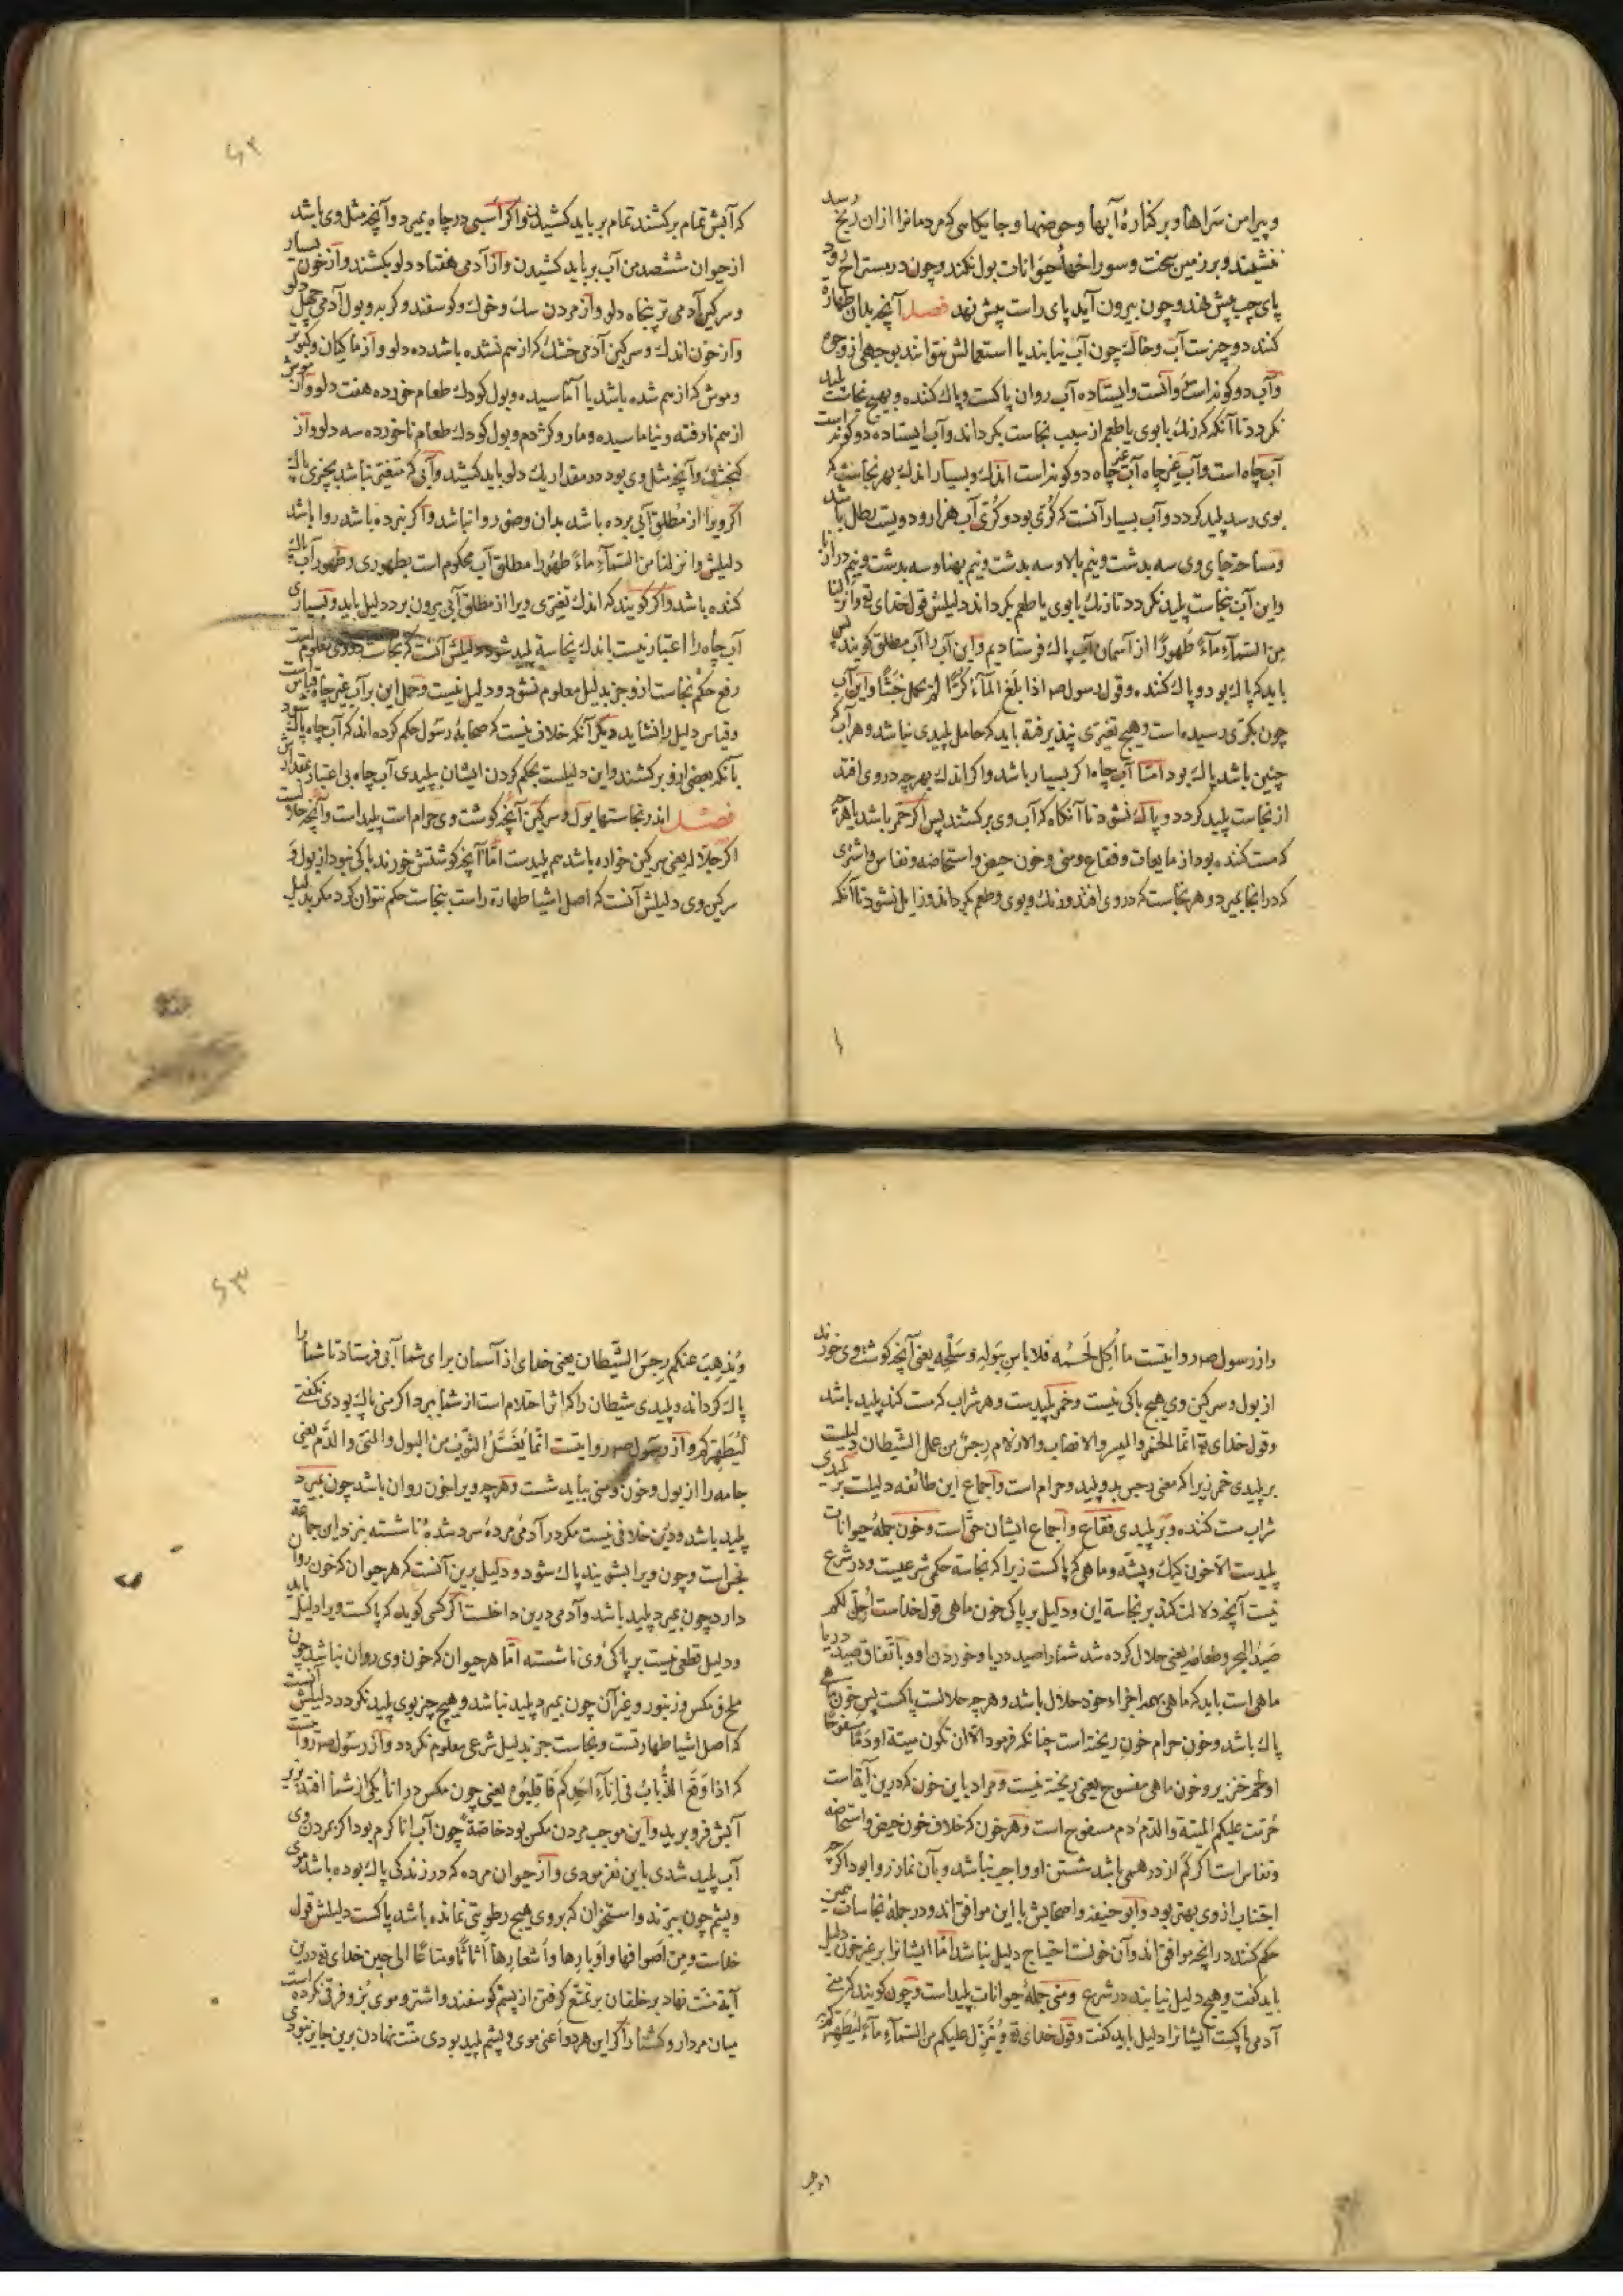 و پیرامن سراها و بر کنارهٔ آبها و حوضها و جایکاسی که مردمانرا ازان رنج رسد
ننشیند و بر زمین سخت و سوراخهاٴ حیوانات بول نکند و چون در مستراح رود
پای چپ پیش نهد و چون بیرون آید پای راست پیش نهد فصل آنچه بدان طهارة
کنند دو چیزست آب و خاك چون آب نیابند یا استعمالش نتوانند بوجهی از وجوه
و آب دو کونه است روانست و ایستاده آب روان پاکست و پاك کننده و بهیچ نجاست پلید
نکردد تا آنکه که رنك یا بوی یا طعم از سبب نجاست بکرداند و آب ایستاده دو کونه است
آب چاه است و آب غیر چاه آب غیر چاه دو کونه است اندك و بسیار اندك بهر نجاست که
بوی رسد پلید کردد و آب بسیار آنست که کرّی بود و کرّی آب هزار و دویست رطل باشد
و مساحة جای وی سه بدست و نیم بالا و سه بدست و نیم پهنا و سه بدست و نیم درازنا
و این آب بنجاست پلید نکردد تا رنك یا بوی یا طعم بکرداند دلیلش قول خدای تع و انزلنا
من السّمآءِ مآءً طَهورًا از آسمان آب پاك فرستادیم و این آب را آب مطلق کویند پس
باید که پاك بود و پاك کننده و قول رسول صم اذا بلغ المآء کُرًّا لم یحمل خبثًا و این آب
چون بکرّی رسیده است و هیچ تغیّری نپذیرفته باید که حامل پلیدی نباشد و هر آب که
چنین باشد پاك بود امّا آب چاه اکر بسیار باشد و اکر اندك بهر چه در وی افتد
از نجاست پلید کردد و پاك نشود تا آنکاه که آب وی برکشند پس اکر خمر باشد یا هر چه
که مست کننده بود از مایعات و فقاع و منی و خون حیض و استحاضه و نفاس و اشتری
که در انجا بمیرد و هر نجاست که در وی افتد و رنك و بوی و طعم بکرداند و زایل نشود تا آنکه
۶۲
که آبش تمام برکشند تمام بر باید کشیدن و اکر اسبی در چاه بمیرد و آنچه مثل وی باشد
از حیوان ششصد من آب بر باید کشیدن و از آدمی هفتاد دلو بکشند و از خون بسیار
و سرکین آدمی تر پنجاه دلو و از مردن سك و خوك و کوسفند و کربه و بول آدمی چهل دلو
و از خون اندك و سرکین آدمی خشك که از هم نشده باشد ده دلو و از ماکیان و کبوتر
و موش که از هم شده باشد یا آماسیده و بول کودك طعام خورده هفت دلو و از موش
از هم نارفته و نیاماسیده و مار و کژدم و بول کودك طعام ناخورده سه دلو و از
کنجشك و آنچه مثل وی بود در مقدار یك دلو باید کشید و آبی که متغیّر باشد بچیزی پاك
اکر ویرا از مُطلق آبی برده باشد بدان وضو روا نباشد و اکر نبرده باشد روا باشد
دلیلش و انزلنا من السّمآءِ مآءً طهُورا مطلق آب محکوم است بطهوری و طهور آب پاك
کننده باشد و اکر کویند که اندك تغیّری ویرا از مطلق آبی بیرون برد دلیل باید و بسیاری
آب چاه را اعتبار نیست باندك نجاسة پلید شود دلیلش آنست که نجاست وی معلوم است
رفع حکم نجاست ازو جز بدلیل معلوم نشود و دلیل نیست و حمل این بر آب غیر چاه قیاس است
و قیاس دلیل را نشاید دیکر آنکه خلاف نیست که صحابهٔ رسول حکم کرده اند که آب چاه پاك شود
بآنکه بعضی ازو برکشند و این دلیلست بحکم کردن ایشان بپلیدی آب چاه بی اعتبار مقدارش
فصل اندر نجاستها بول و سرکین آنچه کوشت وی حرام است پلید است و آنچه حلالست
اکر جلّاله یعنی سرکین خواره باشد هم پلیدست امّا آنچه کوشتش خورند باکی نبود از بول و
سرکین وی دلیلش آنست که اصل اشیا طهارة راست بنجاست حکم نتوان کرد مکر بدلیل
و از رسول صم روایتست ما اُکِل لَحمُه فلا باس بِبَولِه و سَلحِه یعنی آنچه کوشت وی خورند
از بول و سرکین وی هیچ باکی نیست و خمر پلیدست و هر شراب که مست کند پلید باشد
و قول خدای تع انّما الخمر و المیسر و الانصاب و الازلام رجسٌ من عمل الشّیطان دلیلست
بر پلیدی خمر زیرا که معنی رجس بد و پلید و حرام است و اجماع این طائفه دلیلست بر پلیدی
شراب مست کننده و بر پلیدی فقاع و اجماع ایشان حقّ است و خون جملهٔ حیوانات
پلیدست الّا خون کیك و پشّه و ماهی که پاکست زیرا که نجاسة حکمی شرعیست و در شرع
نیست آنچه دلالت کند بر نجاسة این و دلیل بر پاکی خون ماهی قول خداست اُحِلّ لکم
صَیدُ البحر و طعامُه یعنی حلال کرده شد شما را صید دریا و خوردن او و باتفاق صید دریا
ماهی است باید که ماهی بهمه اجزاء خود حلال باشد و هر چه حلالست پاکست پس خون ماهی
پاك باشد و خون حرام خون ریخته است چنانکه فرمود الّا ان تکون میتة او دمًا مسفوحًا
او لحم خنزیر و خون ماهی مسفوح یعنی ریخته نیست و مراد باین خون که درین آیة است
حُرّمت علیکم المیتة و الدّم دم مسفوح است و هر خون که خلاف خون حیض و استحاضه
و نفاس است اکر کم از درهمی باشد شستن او واجب نباشد و بآن نماز روا بود اکر چه
اجتناب از وی بهتر بود و ابو حنیفه و اصحابش با این موافق اند و در جملهٔ نجاسات همین
حکم کنند در انچه موافق اند و آن خونست احتیاج دلیل نباشد امّا ایشانرا بر غیر خون دلیل
باید کفت و هیچ دلیل نیابند در شرع و منی جملهٔ حیوانات پلید است و چون کویند که منی
آدمی پاکست ایشانرا دلیل باید کفت و قول خدای تع و یُنَزِّل علیکم من السّمآءِ مآءً لیُطَهّرکم به
۶۳
و یُذهِبَ عنکم رِجسَ الشّیطان یعنی خدای از آسمان برای شما آبی فرستاد تا شما را
پاك کرداند و پلیدی شیطان را که اثر احتلام است از شما ببرد اکر منی پاك بودی نکفتی
لیُطهّرکم و از رسول صم روایتست انّما یُغسَلُ الثّوبُ من البول و المنیّ و الدّم یعنی
جامه را از بول و خون و منی بباید شست و هر چه ویرا خون روان باشد چون بمیرد
پلید باشد و درین خلافی نیست مکر در آدمیٔ مردهٔ سرد شدهٔ ناشسته نیز در این جماعة
نجس است و چون ویرا بشویند پاك شود و دلیل برین آنست که هر حیوان که خون روان
دارد چون بمیرد پلید باشد و آدمی درین داخلست اکر کسی کوید که پاکست ویرا دلیل باید
و دلیل قطعی نیست بر پاکی وی ناشسته امّا هر حیوان که خون وی روان نباشد چون
ملخ و مکس و زنبور و غیر آن چون بمیرد پلید نباشد و هیچ چیز بوی پلید نکردد دلیلش آنست
که اصل اشیا طهارتست و نجاست جز بدلیل شرعی معلوم نکردد و از رسول صم روایتست
که اذا وَقَعَ الذُّبابُ فی اِنآءِ احدِکم فَامْقِلُوه یعنی چون مکس در اناٴ یکی از شما افتد بزیر
آبش فرو برید و این موجب مردن مکس بود خاصّة چون آب انا کرم بود اکر بمردن وی
آب پلید شدی باین نفرمودی و از حیوان مرده که در زندکی پاك بوده باشد موی
و پشم چون ببرند و استخوان که بر وی هیچ رطوبتی نمانده باشد پاکست دلیلش قول
خداست و مِن اَصوافها و اَوبارِها و اَشعارِها اَثاثًا و متاعًا الی حین خدای تع درین
آیة منّت نهاد بر خلقان بر تمتّع کرفتن از پشم کوسفند و اشتر و موی بُز و فرقی نکرده است
میان مردار و کشتا را اکر این هر دو اعنی موی و پشم پلید بودی منّت نهادن برین جایز نبودی